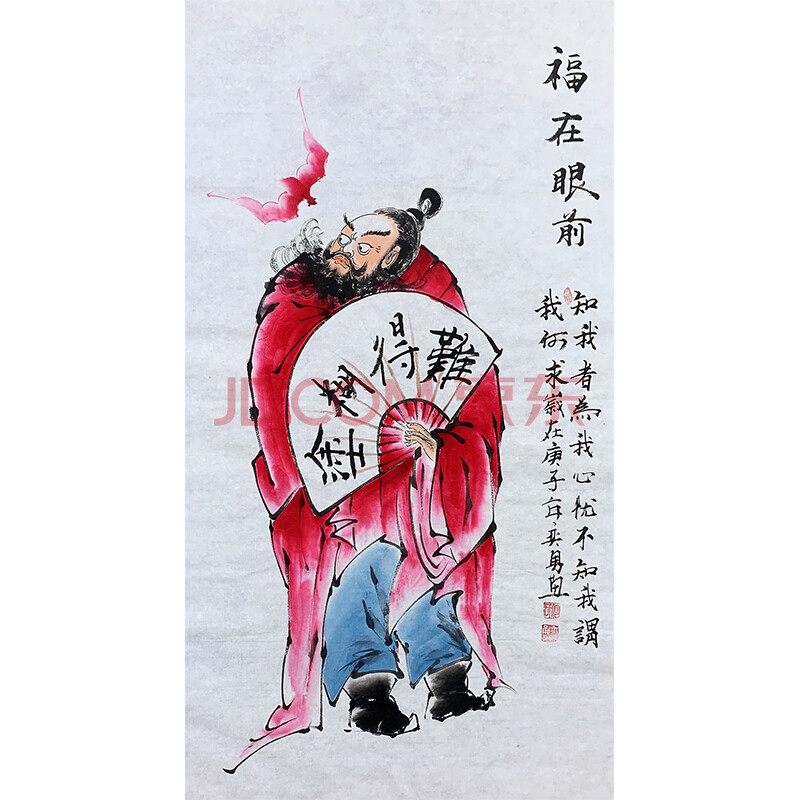 福在眼前
知我者為我心忧不知我謂
我何求歲在庚子年奕勇畫
難得糊塗
JD.COM 京东